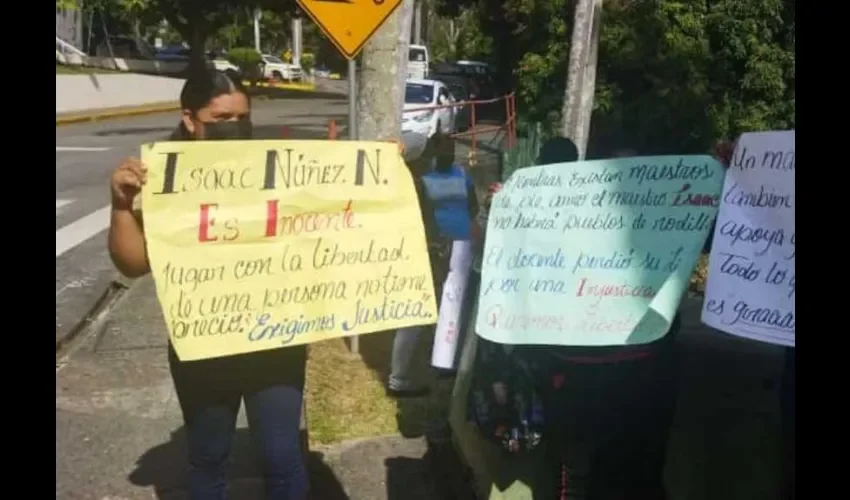 Isaac Núñez N.
Es Inocente.
Jugar con la libertad
de una persona no tiene
precio; Exigimos Justicia.
Mientras Existan maestros
de pie, como el maestro Isaac
no habrá pueblos de rodill
El docente perdió su li
por una Injusticia
Queremos libert
Un ma
También
apoya y
Todo lo q
es gracia